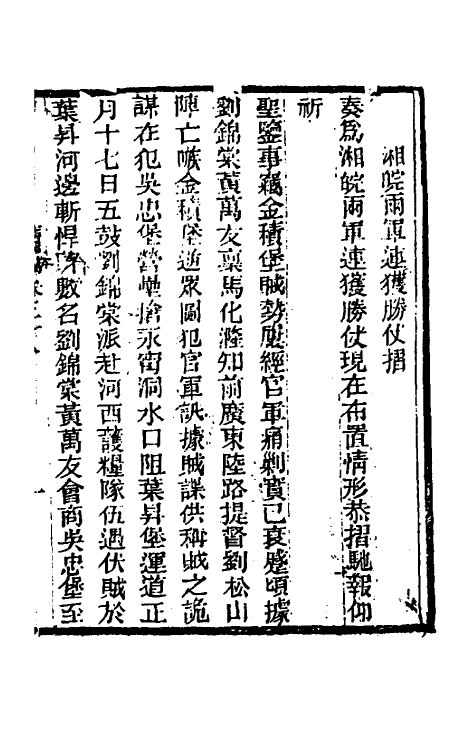 湘皖兩軍連獲勝仗摺
奏爲湘皖兩軍連獲勝仗現在布置情形恭摺馳報仰
祈
聖鑒事竊金積堡賊勢屢經官軍痛剿實已衰蹙頃據
劉錦棠黃萬友稟馬化漋知前廣東陸路提督劉松山
陣亡嗾金積堡逆眾圖犯官軍訊據賊諜供稱賊之詭
謀在犯吳忠堡營壘搶永甯洞水口阻葉昇堡運道正
月十七日五鼓劉錦棠派赴河西護糧隊伍遇伏賊於
葉昇河邊斬悍賊數名劉錦棠黃萬友會商吳忠堡至